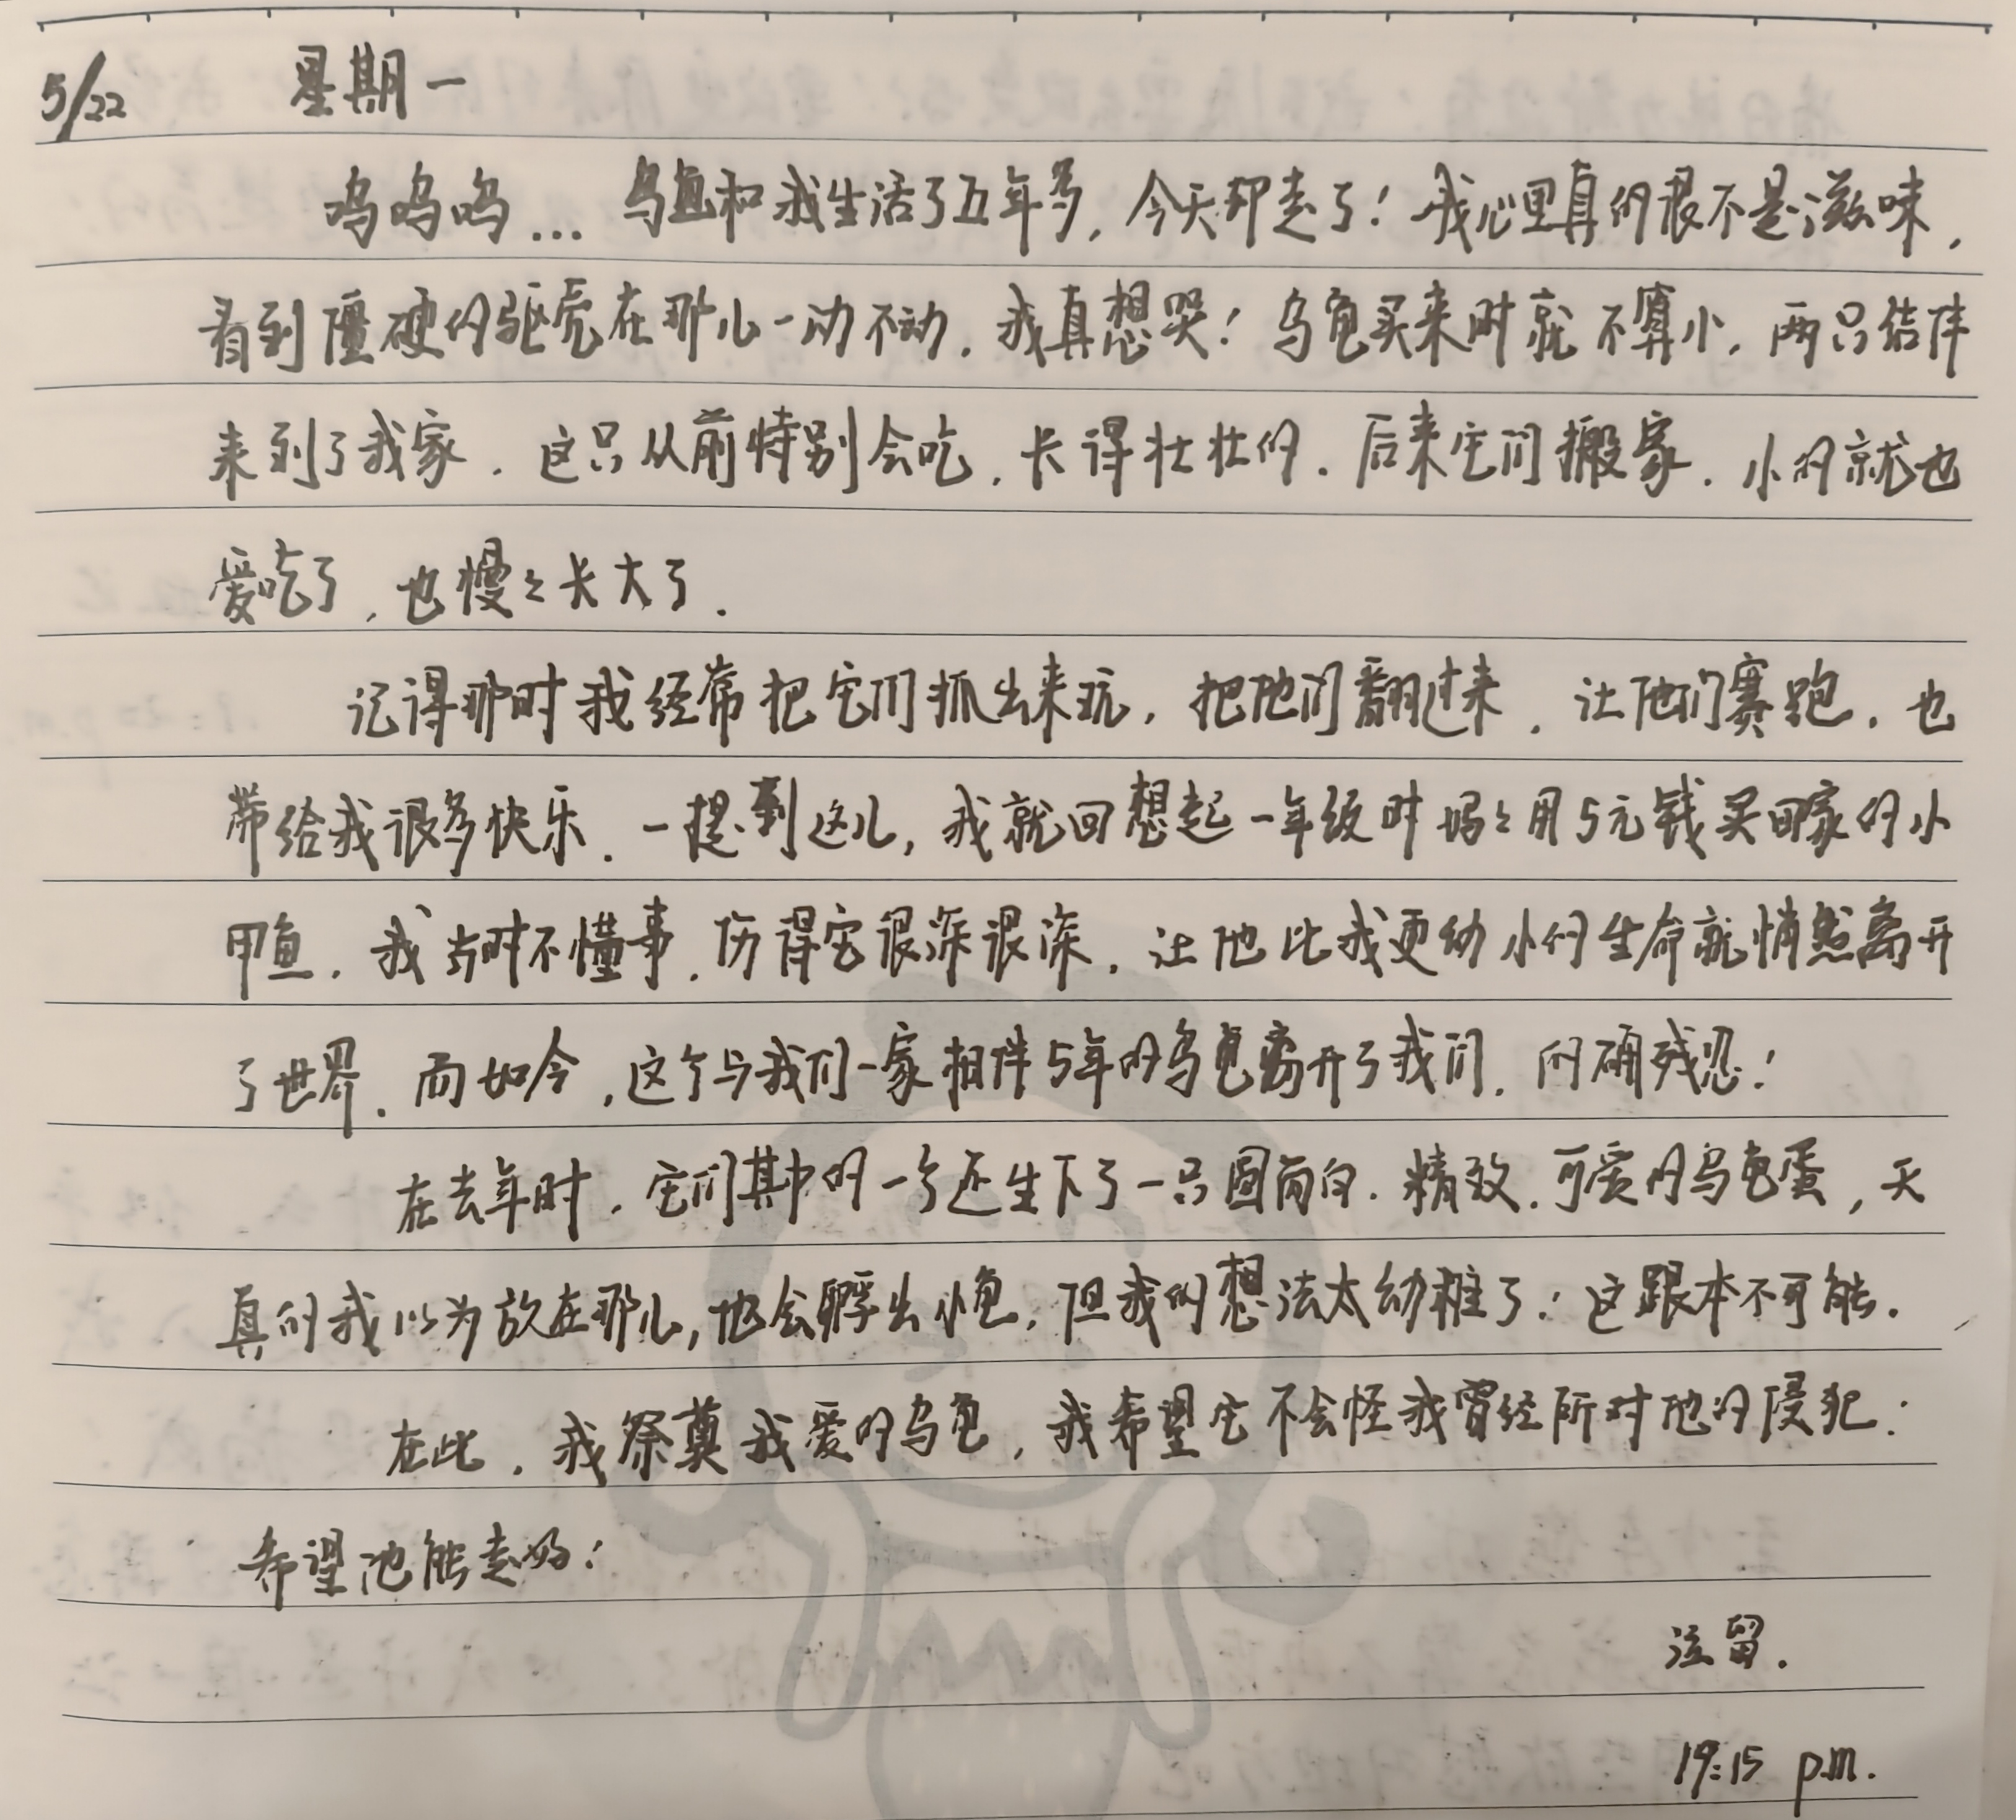 5/22 星期一
呜呜呜... 乌龟和我生活了五年多，今天却走了！我心里真的很不是滋味，
看到僵硬的躯壳在那儿一动不动，我真想哭！乌龟买来时就不算小，两只结伴
来到了我家．这只从前特别会吃，长得壮壮的．后来它们搬家．小的就也
爱吃了，也慢々长大了．
记得那时我经常把它们抓出来玩，把他们翻过来，让他们赛跑，也
带给我很多快乐．一提到这儿，我就回想起一年级时妈々用5元钱买回家的小
甲鱼．我当时不懂事，伤得它很深很深，让他比我更幼小的生命就悄然离开
了世界．而如今，这个与我们一家相伴5年的乌龟离开了我们，的确残忍！
在去年时，它们其中的一个还生下了一只圆而白．精致．可爱的乌龟蛋，天
真的我以为放在那儿，他会孵出小龟，但我的想法太幼稚了！这跟本不可能．
在此，我祭奠我爱的乌龟，我希望它不会怪我曾经所对他的侵犯！
希望他能走好！
泣留．
19:15 p.m.